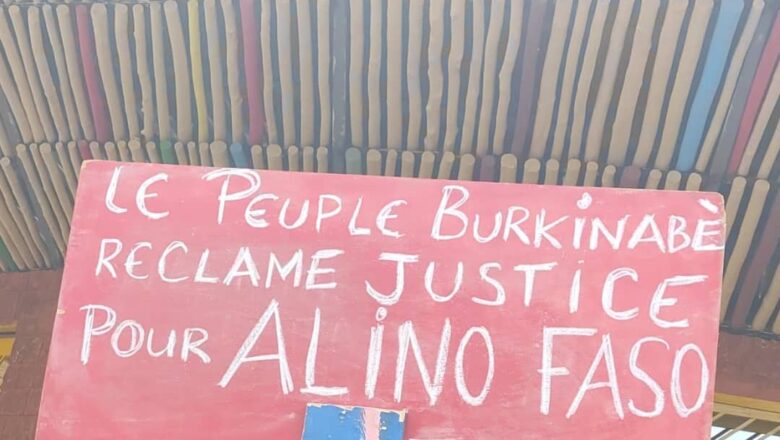 Le Peuple Burkinabè
Reclame Justice
Pour Alino Faso